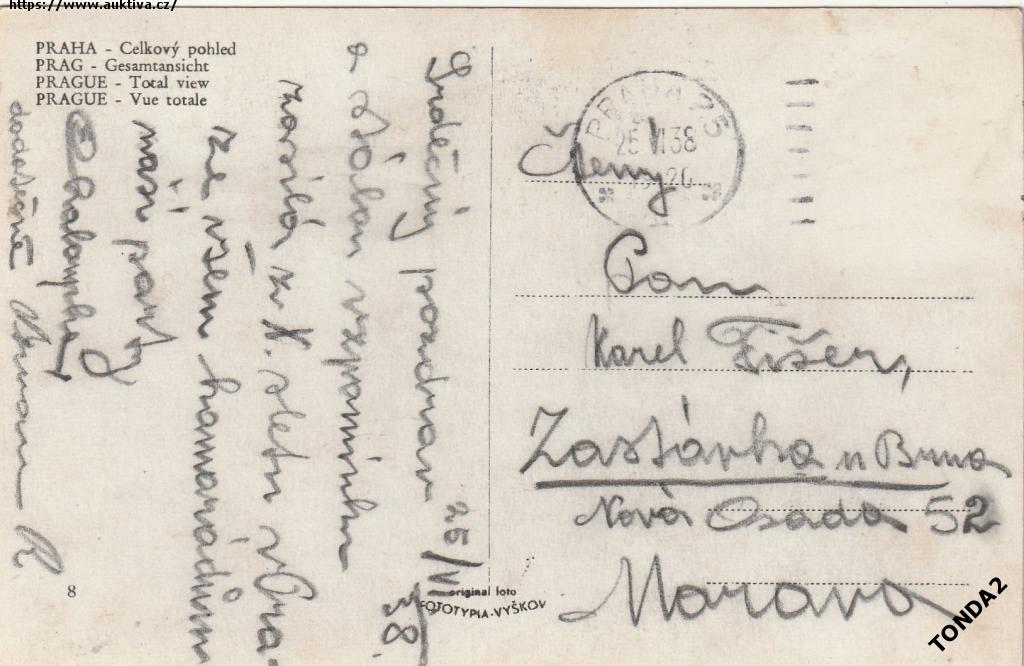 https://www.auktiva.cz/
PRAHA - Celkový pohled
PRAG - Gesamtansicht
PRAGUE - Total view
PRAGUE - Vue totale
Srdečný pozdrav 25/VI
38.
a stálou vzpomínku
zasílá z X. sletu v Pra-
ze všem kamarádům
naší party
dodatečně
R.
8
original foto
FOTOTYPIA-VYŠKOV
PRAHA 25
25 VI 38
Pan
Karel Fišer,
Zastávka u Brna
Nová Osada 52
Morava
TONDA2